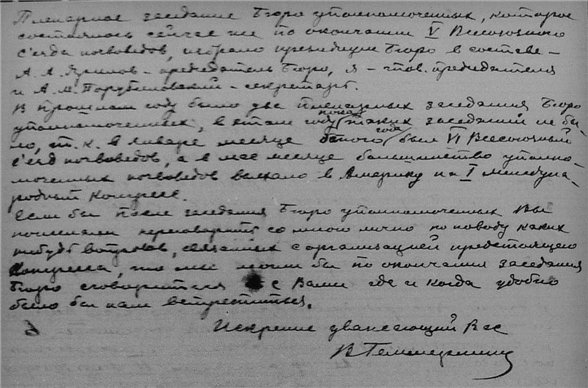 Пленарное заседание Бюро уполномоченных, которое
состоялось сейчас же по окончании V Всесоюзного
съезда почвоведов, избрало президиум Бюро в составе –
А.А. Ярилов – председатель Бюро, я – тов. председателя
и А.М. Порубиновский – секретарь.
В прошлом году было два пленарных заседания Бюро
уполномоченных, в этом году таких заседаний не бы-
ло, т.к. в январе месяце этого года был VI Всесоюзный
съезд почвоведов, а в мае месяце большинство уполно-
моченных почвоведов выехало в Америку на I Междуна-
родный Конгресс.
Если бы после заседания Бюро уполномоченных Вы
пожелали переговорить со мною лично по поводу каких
нибудь вопросов, связанных с организацией предстоящего
Конгресса, то мы могли бы по окончании заседания
Бюро сговориться с Вами где и когда удобно
было бы нам встретиться.
Искренне уважающий Вас
В Геммерлинг